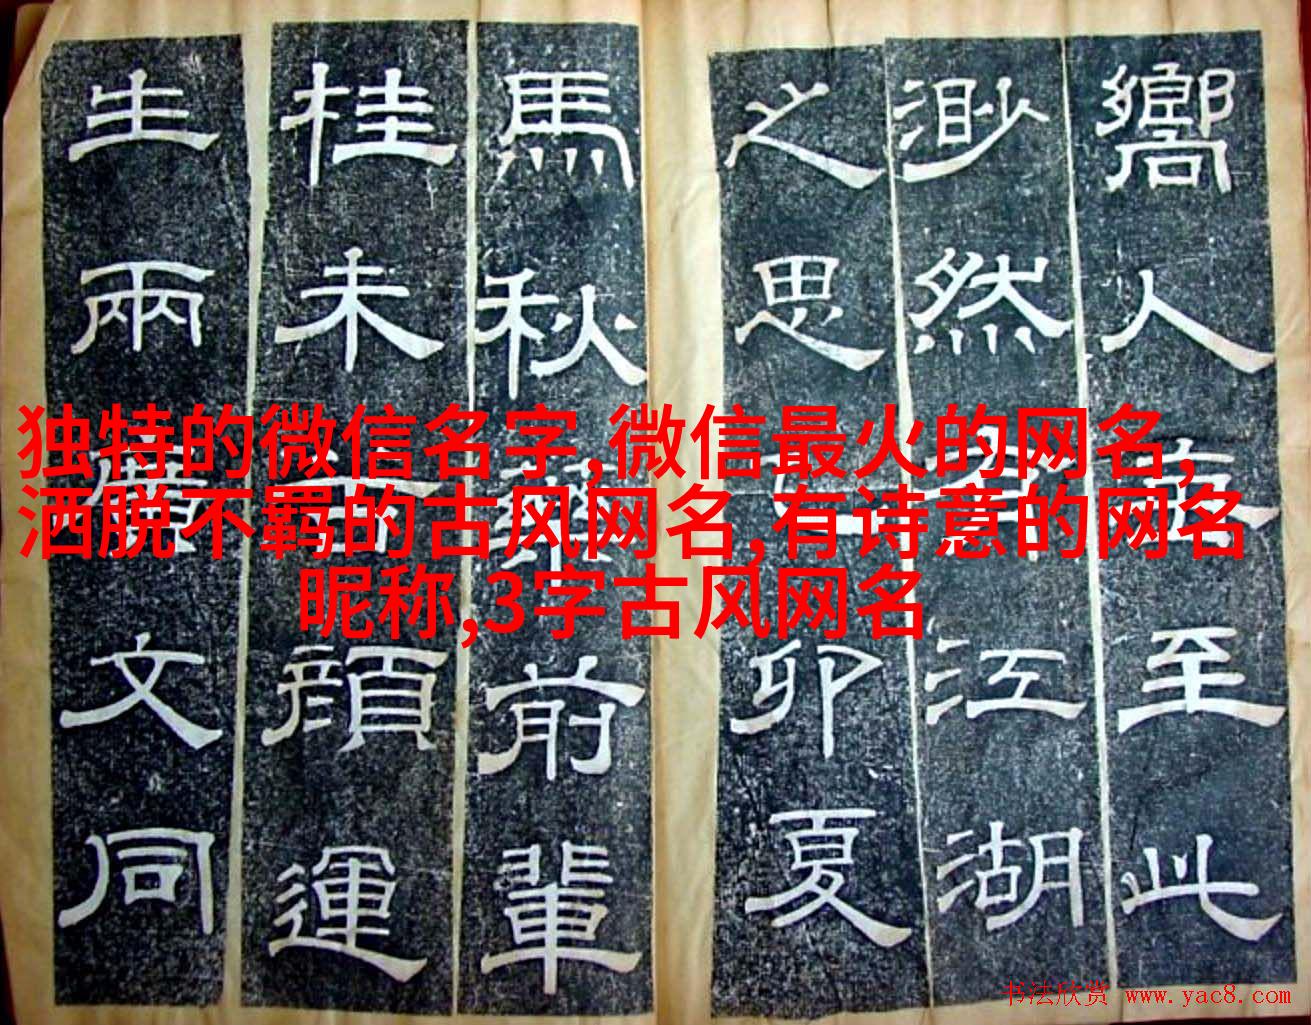 嚮人至此
渺然江湖
之思卯夏
馬秋前輩
桂未顏運
生兩廣文同
独特的微信名字,微信最火的网名,
洒脱不羁的古风网名,有诗意的网名
昵称,3字古风网名
书法欣赏 www.yac8.com